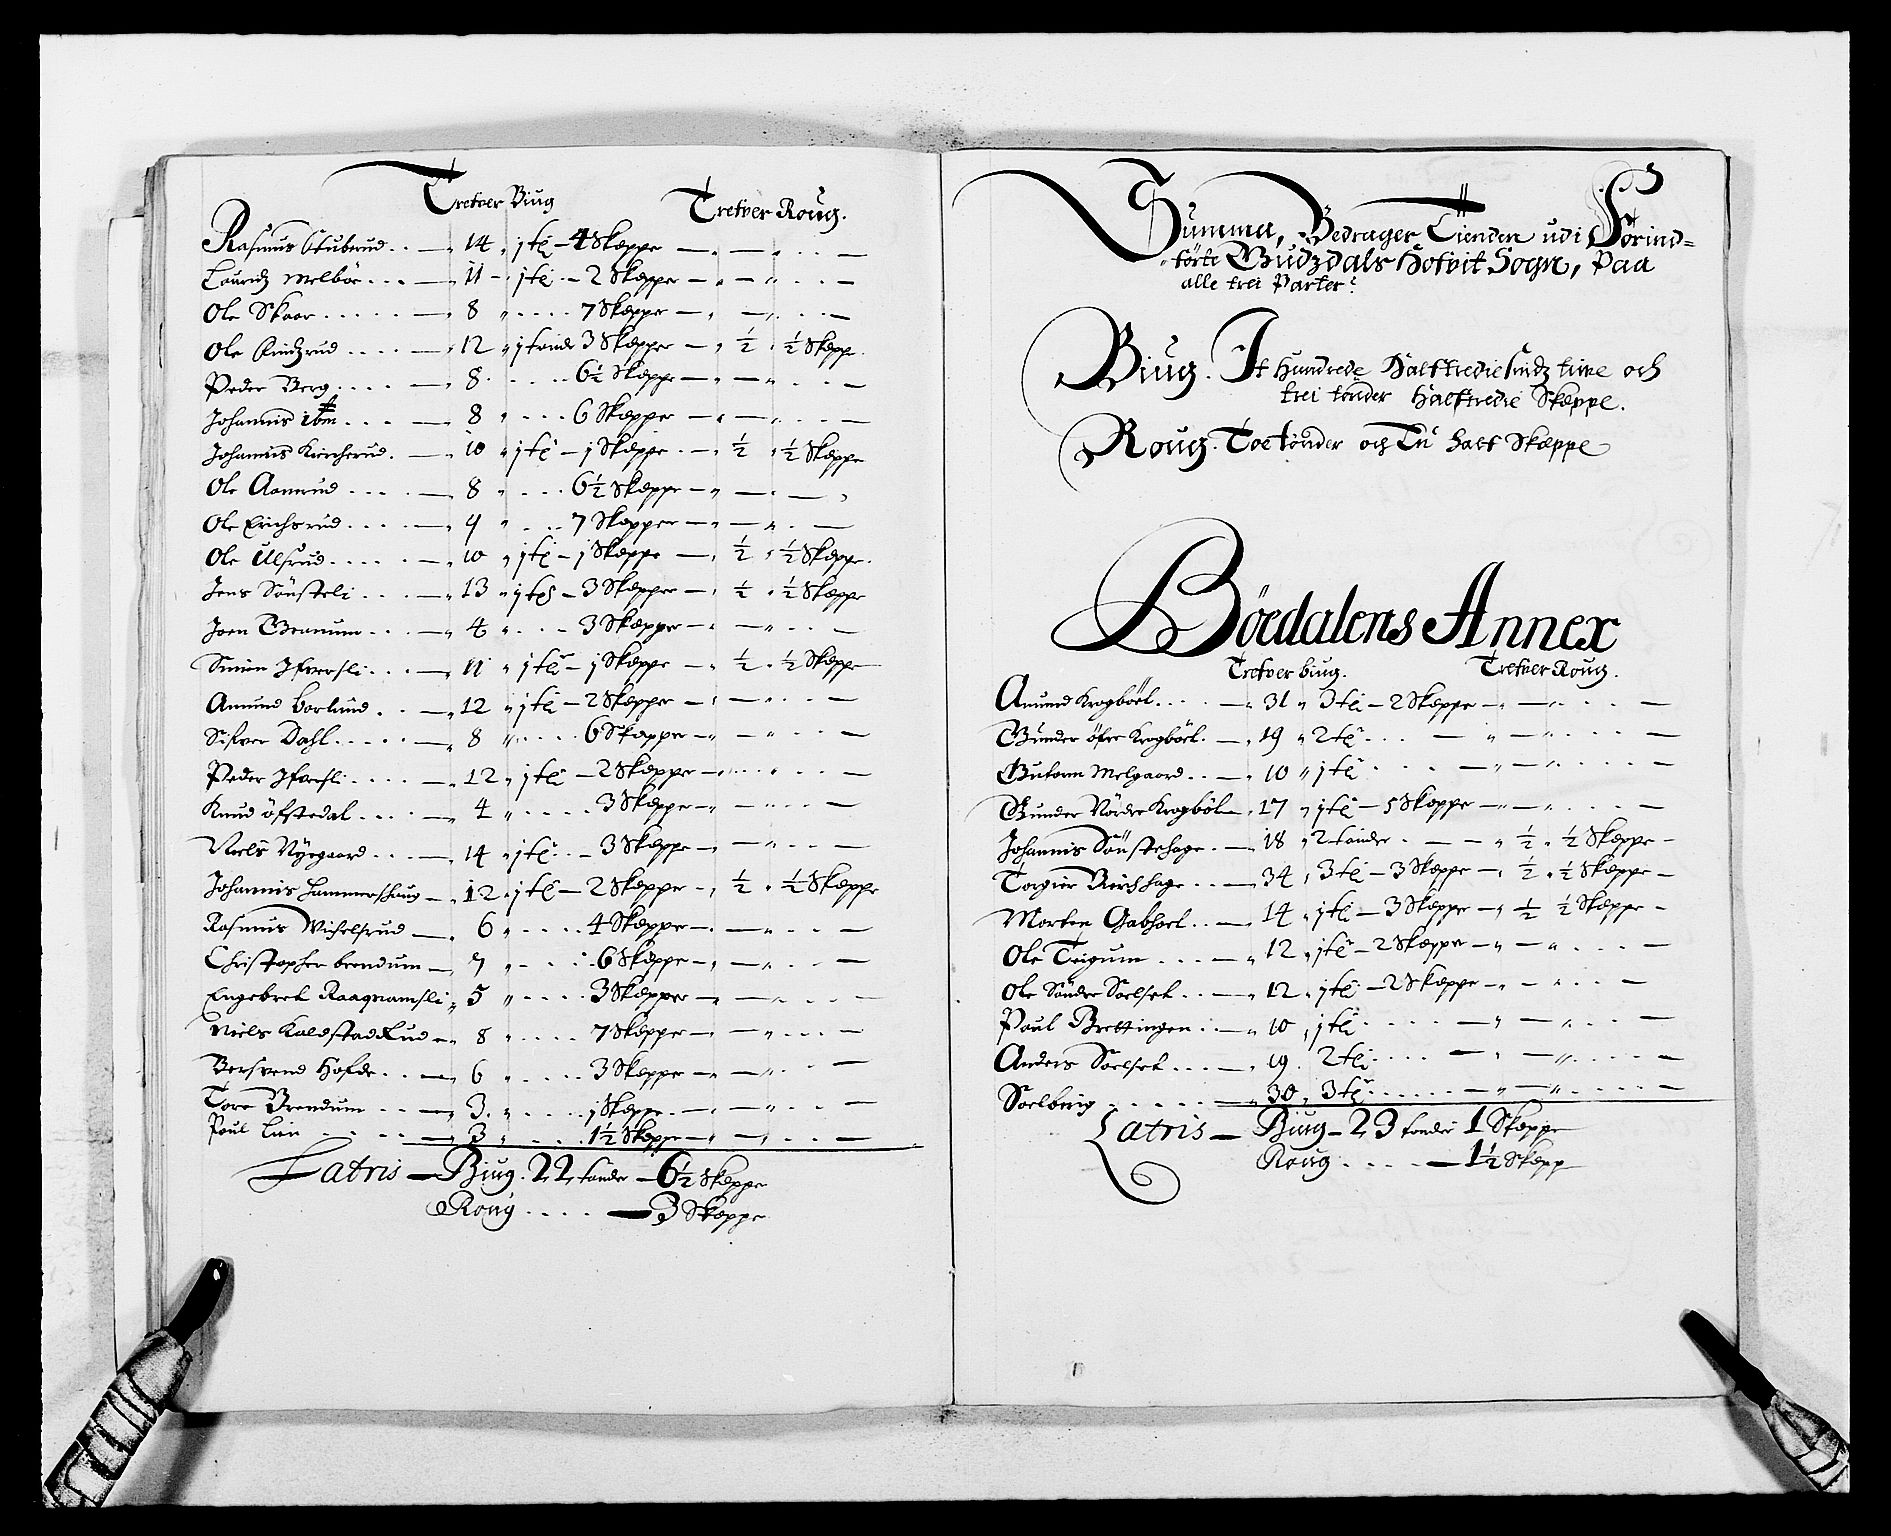 Tretver Biug Tretver Roug.
Rasmus Stuberud . . — 14 „ j tđ — 4 Skæppe — „ — „ . . . —
Lauridz Melbøe . . . — 11 — j tđ . — 2 Skæppe — „ — „ . . . —
Ole Skaar . . . . . — 8 „ . . . . 7 Skæppe — „ — „ . . . —
Ole . . . . — 12 „ j tønde 3 Skæpper — „ ½ „ ½ Skæppe.
Peder Berg . . . . — 8 . . . . . 6½ Skæppe — „ — „ . . . —
Johannis ibm . . . — 8 „ . . . . 6 Skæpper — „ — „ . . . —
Johannis Kircherud . — 10 „ j tđ — j Skæppe . — „ ½ „ ½ Skæppe
Ole Aamrud . . . . — 8 „ . . . 6½ Skæppe — „ — „ —
Ole Erichsrud . . . . — 9 „ . . . 7 Skæpper — „ — „ . —
Ole Ulsrud . . . . . — 10 „ j tđ — j Skæppe — „ ½ „ ½ Skæppe.
Jens Sønsteli . . . — 13 „ j tđ — 3 Skæpper — „ ½ „ ½ Skæppe
Joen Granum . . . — 4 „ . . . — 3 Skæpper — „ — „ . . —
Simen Ifversli . . . — 11 „ j tđ — j Skæppe — „ ½ „ ½ Skæppe
Amund Borlund . . — 12 „ j tđ — 2 Skæpper — „ — „ . . . —
Sifver Dahl . . . . . — 8 „ . . . . 6 Skæpper — „ — „ . . . —
Peder Ifversli . . . . — 12 „ j tđ — 2 Skæpper — „ — „ . . . —
Knud Öfstedal . . . . — 4 „ . . . . . 3 Skæppe — „ — „ . . . —
Niels Nyegaard . . . — 14 „ j tđ . . — 3 Skæppe — „ — „ . . . —
Johannis Hammershaug — „ 12 „ j tđ — 2 Skæppe — „ ½ „ ½ Skæppe
Rasmus Michelsrud — „ 6 „ . . . . 4 Skæpper — „ — „ . . . —
Christopher brendum — „ 7 „ . . . . 6 Skæppe — „ — „ . . . —
Engebret Raagnamsli „ 5 „ . . . . 3 Skæpper — „ — „ . . . —
Niels KaldstadRud — „ 8 „ . . . . 7 Skæppe — „ — „ . . . —
Bersvend Hofde . . — „ 6 „ . . . . . 3 Skæppe — „ — „ . . . —
Tore Brendum . . . — „ 3 . „ . . . . . j Skæppe . — „ — „ . . . —
Poul Lien . . . . — „ 3 „ . . . . 1½ Skæppe — „ — „ . . . —
Latris — Biug . 22 tønder — 6½ Skæppe
Roug . . . . — 3 Skæppe
Summa, Bedrager Tienden udi Förind=
förte Gudzdals Hofvit Sogn, Paa
alle trei Parter:
Biug. It Hundrede Halftredie sindz tiuve och
trei tönder Halftredie Skæppe.
Roug. Toe tönder och Tii half Skæppe
Böedalens Annex
Tretver biug. Tretver Roug.
Amund Krogböel . . . — „ 31 „ 3 tđ — 2 Skæppe — „ — „ . . . —
Gunder öfre Krogböel. — „ 19 „ 2 tđ . . . — „ — „ . . . . —
Gutorm Melgaard . . — „ 10 „ j tđ . . . . — „ — „ . . . . —
Gunder Nördre Krogböl — „ 17 „ j tđ — 5 Skæppe — „ — „ . . . —
Johannis Sönstehage . — 18 „ 2 tönder . — — „ ½ „ ½ Skæppe —
Torgier hage . . — 34 „ 3 tđ — 3 Skæppe — „ ½ „ ½ Skæppe —
Morten Gabhoel . . — 14 „ j tđ — 3 Skæppe — „ ½ ½ Skæppe —
Ole Teigum . . . — „ 12 „ j tđ — 2 Skæppe — „ — „ . . . —
Ole Söndre Soelset . . — „ 12 „ j tđ — 2 Skæppe — „ — „ . . . —
Poul Brettingen . . — „ 10 „ j tđ . . . . — „ — „ . . . —
Anders Soelset . . . — „ 19 . 2 tđ . . . . — „ — „ . . . . —
Soelberig . . . . . — „ 30 „ 3 tđ . . . . . — „ — „ . . . . —
Latris — Biug — 23 tønder 1 Skæppe
Roug . . . . — 1½ Skæpp